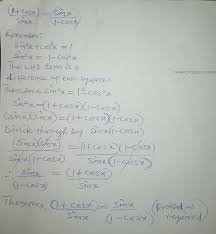 (1+cosx) = sinx
sinx 1-cosx
Remember:
sin²x+cos²x=1
sin²x = 1-cos²x
The LHS term is a
difference of two squares
Therefore sin²x=1²-cos²x
sin²x=(1+cosx)(1-cosx)
(sinx)(sinx)=(1+cosx)(1-cosx)
Divide through by sinx(1-cosx)
(sinx)(sinx) = (1+cosx)(1-cosx)
sinx(1-cosx) sinx(1-cosx)
∴ sinx = (1+cosx)
(1-cosx) sinx
Therefore (1+cosx) = sinx (proved as
sinx (1-cosx) required)